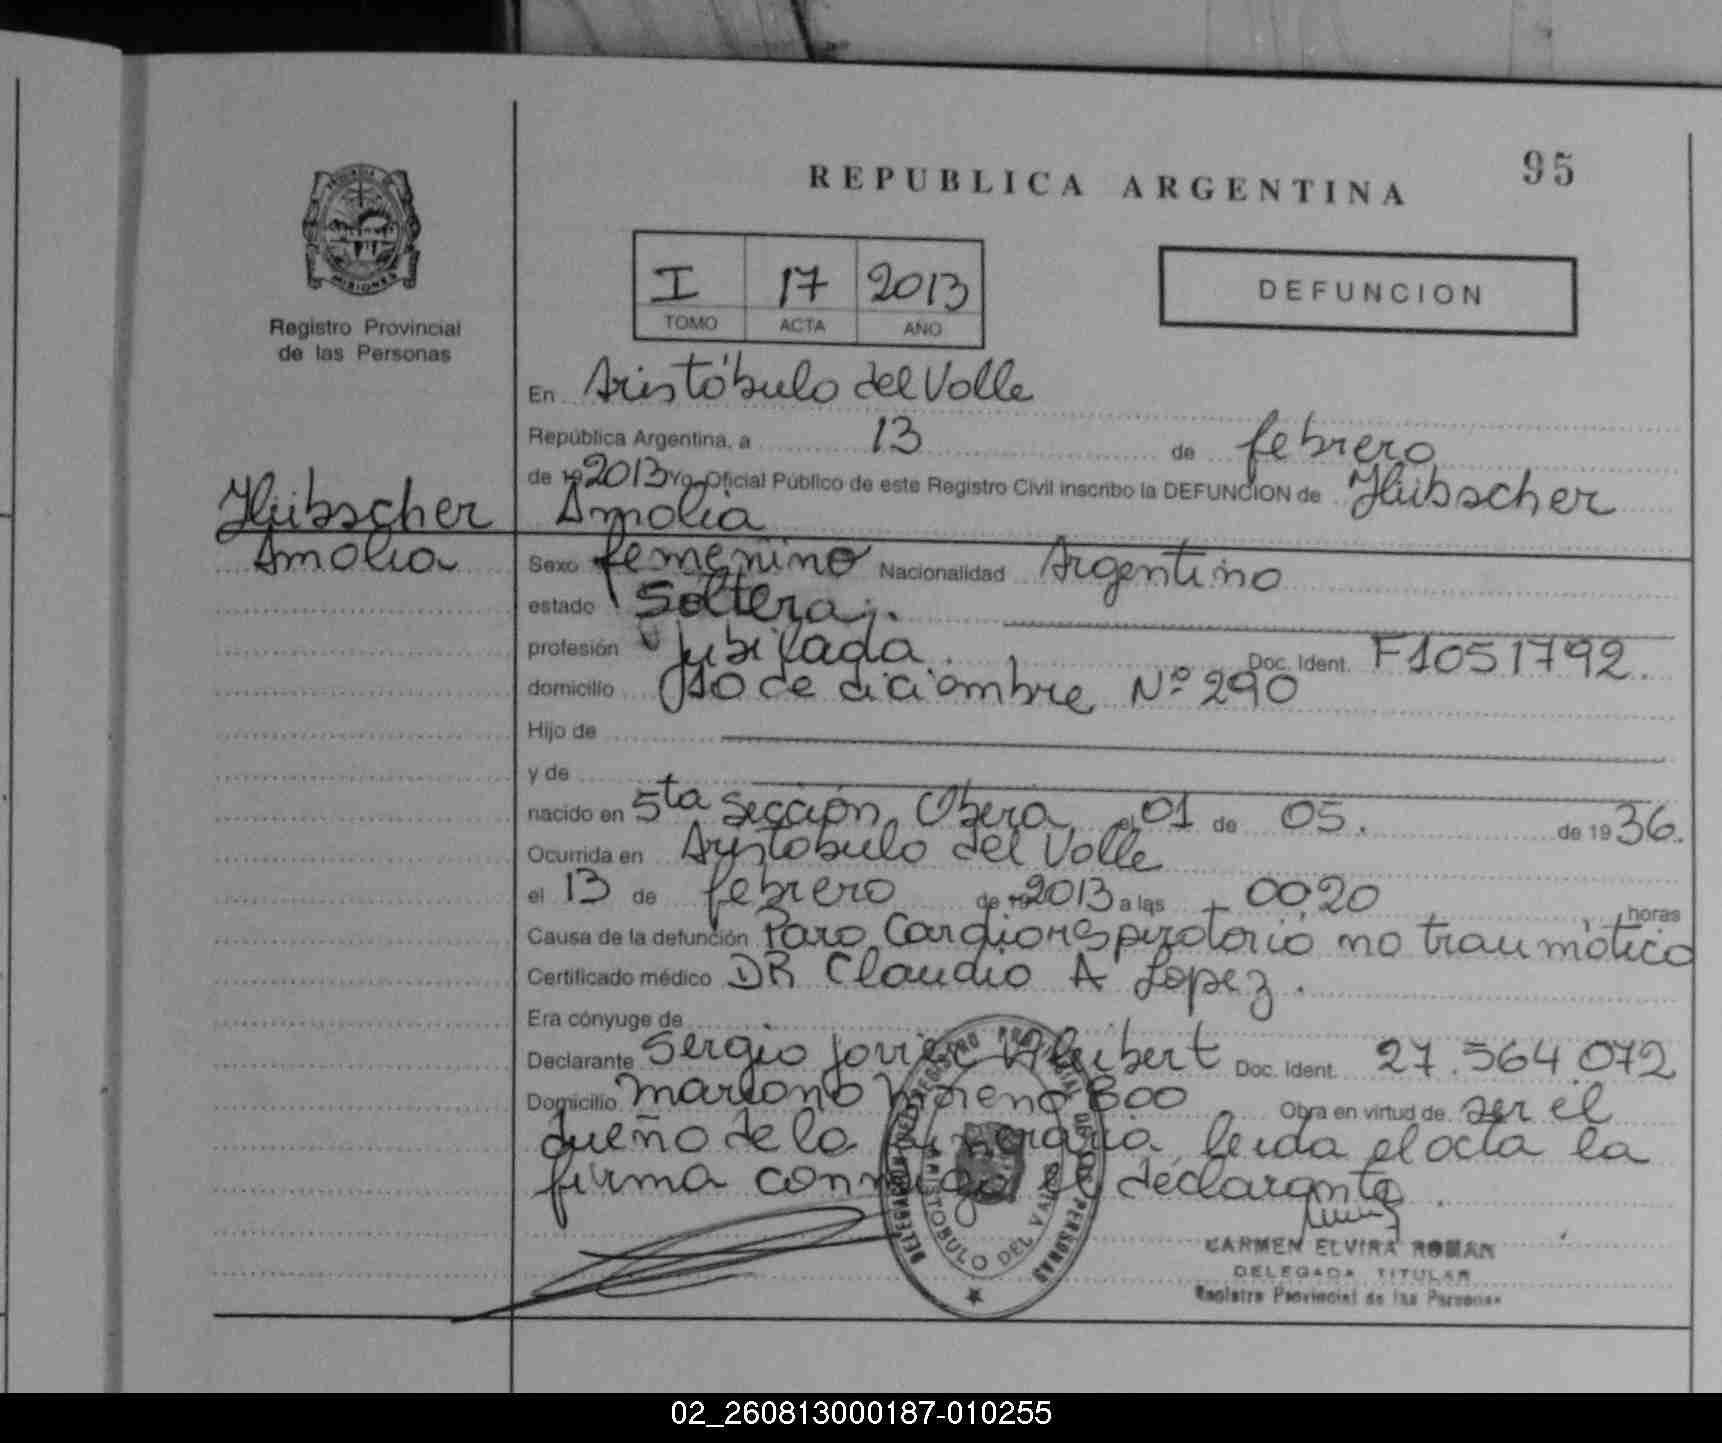 95
REPUBLICA ARGENTINA
PROVINCIA DE
MISIONES
Registro Provincial
de las Personas
I 17 2013
TOMO ACTA AÑO
DEFUNCION
En Aristóbulo del Valle
República Argentina, a 13 de febrero
de 19 2013 Yo, Oficial Público de este Registro Civil inscribo la DEFUNCION de Hübscher
Amalia
Hübscher
Amalia
Sexo femenino Nacionalidad Argentina
estado Soltera.
profesión jubilada Doc. Ident. F1051792.
domicilio 10 de diciembre Nº 290
Hijo de
y de
nacido en 5ta sección Obera el 01 de 05. de 19 36.
Ocurrida en Aristobulo del Valle
el 13 de febrero de 19 2013 a las 0020 horas
Causa de la defunción Paro Cardiorespiratorio no traumático
Certificado médico DR Claudio A Lopez.
Era cónyuge de
Declarante Sergio Javier Doc. Ident. 27.564.072
Domicilio Mariano Moreno 800 Obra en virtud de ser el
dueño de la funeraria leida el acta la
firma conmigo el declarante.
DELEGACION DEL REGISTRO PROVINCIAL DE LAS PERSONAS
ARISTOBULO DEL VALLE
CARMEN ELVIRA ROMAN
DELEGADA TITULAR
Registro Provincial de las Personas
02_260813000187-010255